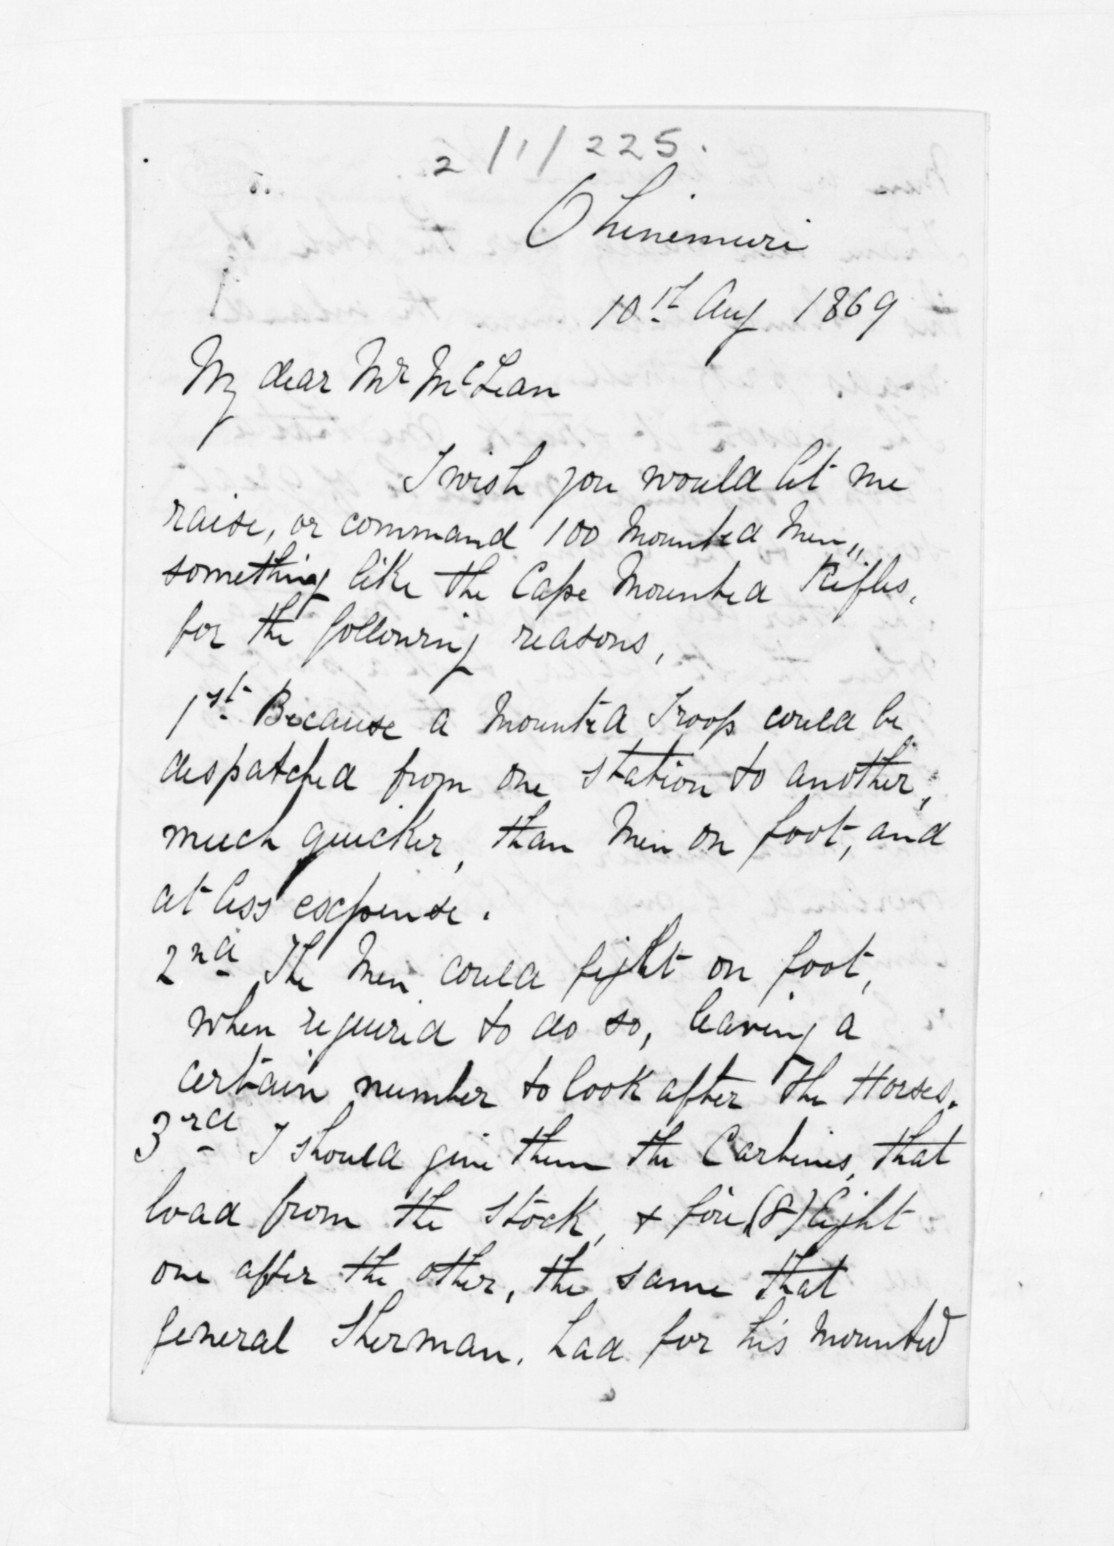 2/1/225.
Ohinemuri
10th Aug 1869
My dear Mr McLean
I wish you would let me
raise, or command 100 Mounted Men,,
something like the Cape Mounted Rifles,
for the following reasons,
1st. Because a Mounted Troop could be
despatched from one station to another,
much quicker, than Men on foot, and
at less expense.
2nd The Men could fight on foot,
when required to do so, leaving a
certain number to look after the Horses.
3rd I should give them the Carbines, that
load from the stock, & fire (8) Eight
one after the other, the same that
General Sherman. had for his Mounted